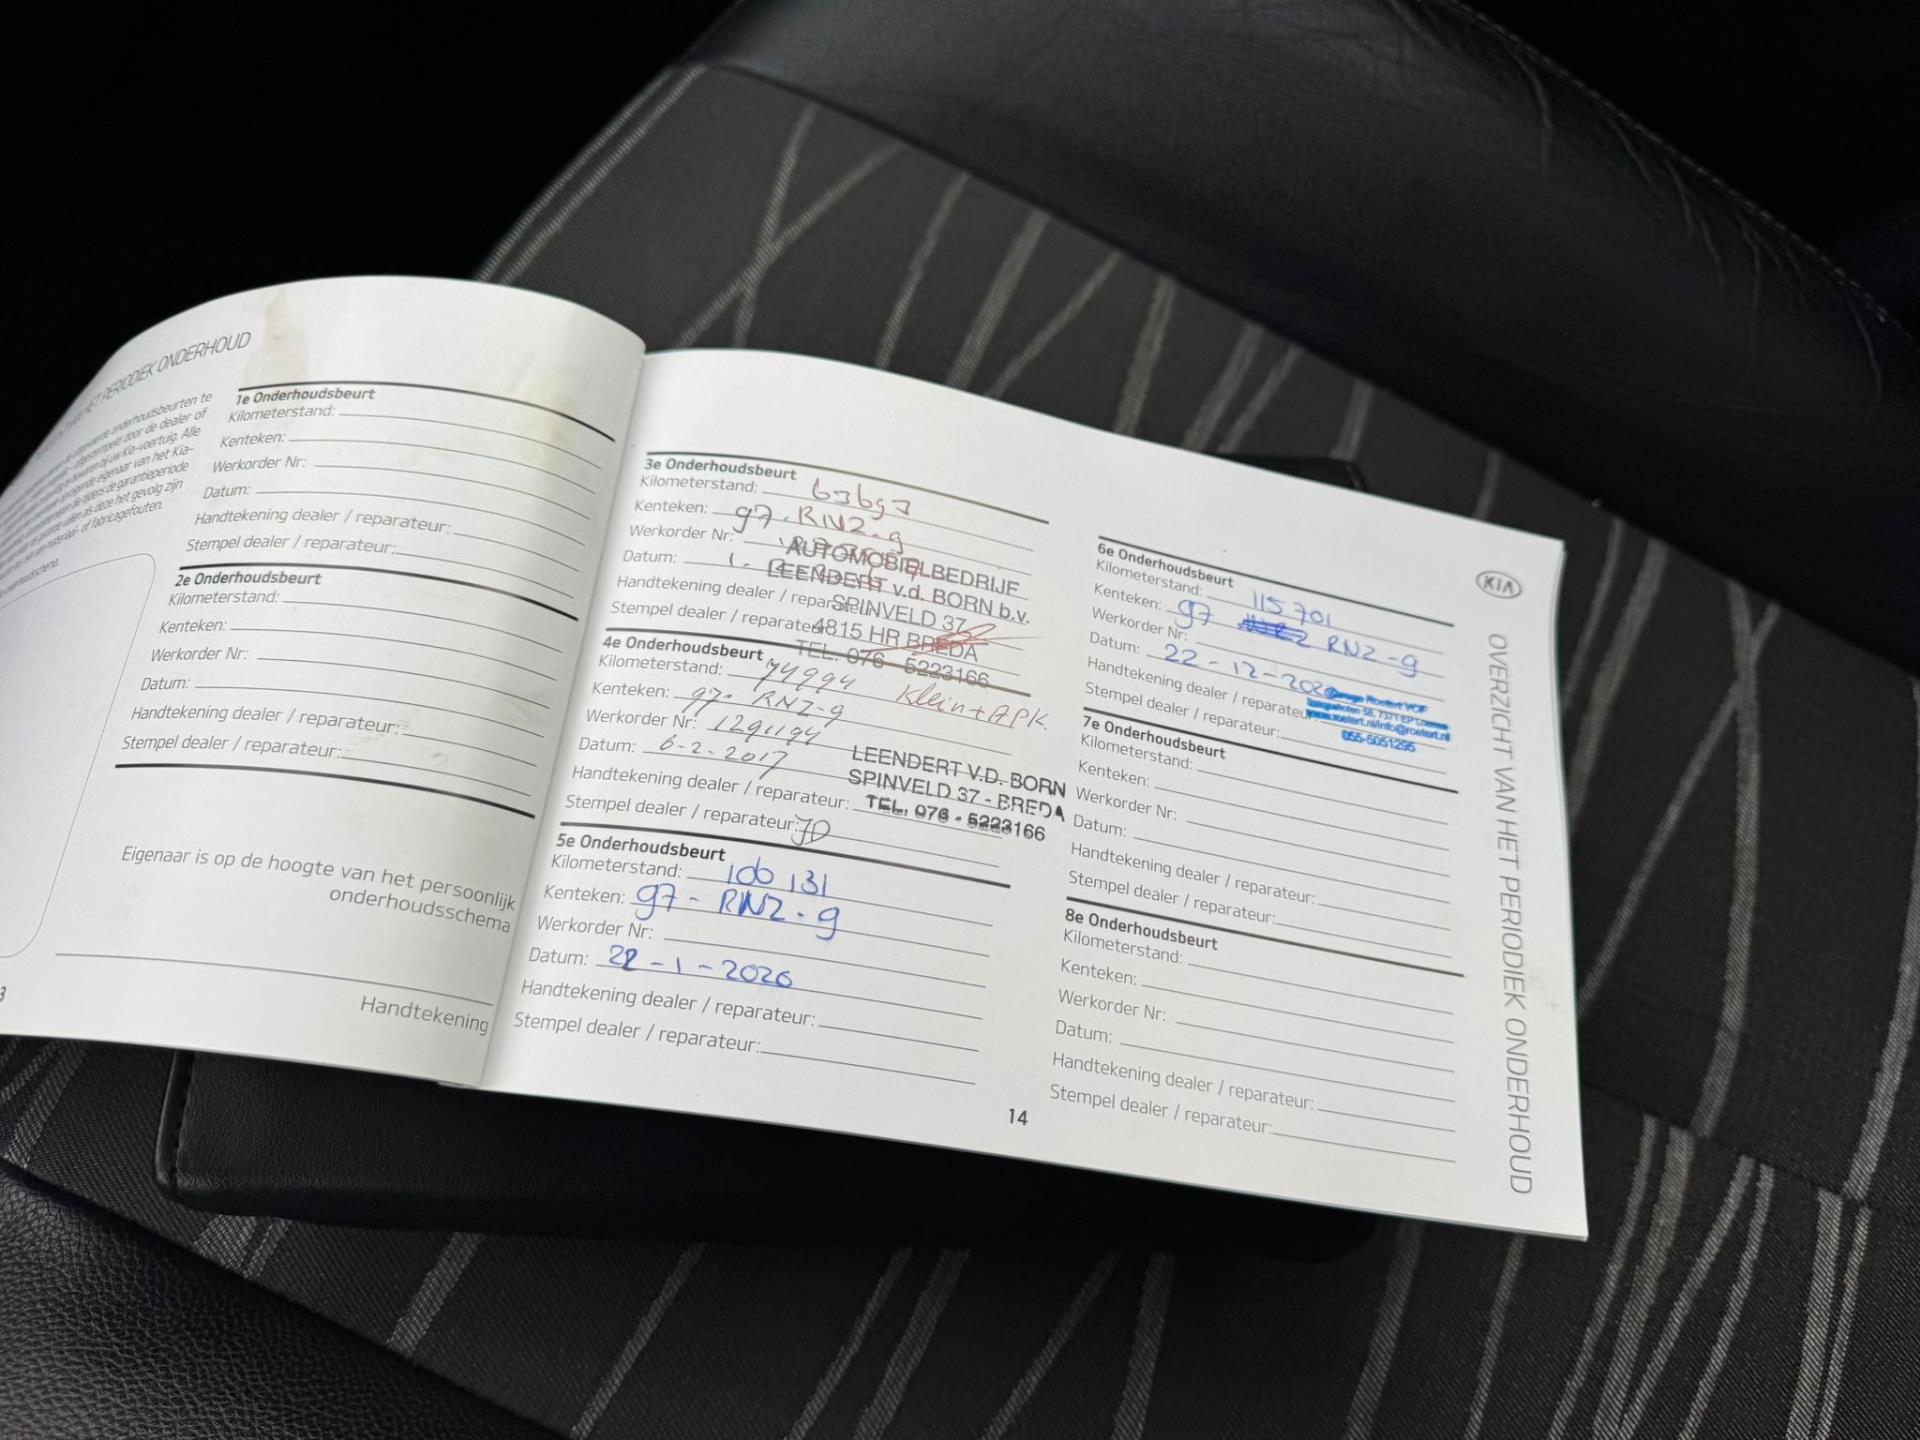 HET PERIODIEK ONDERHOUD
onderhoudsbeurten te
afgestempeld door de dealer of
Kia-voertuig. Alle
eigenaar van het Kia-
tijdens de garantieperiode
als deze het gevolg zijn
materiaal- of fabricagefouten.
1e Onderhoudsbeurt
Kilometerstand:
Kenteken:
Werkorder Nr:
Datum:
Handtekening dealer / reparateur:
Stempel dealer / reparateur:
2e Onderhoudsbeurt
Kilometerstand:
Kenteken:
Werkorder Nr:
Datum:
Handtekening dealer / reparateur:
Stempel dealer / reparateur:
Eigenaar is op de hoogte van het persoonlijk
onderhoudsschema
Handtekening
3e Onderhoudsbeurt
Kilometerstand: 63693
Kenteken: 97-RNZ-9
Werkorder Nr:
Datum:
Handtekening dealer / reparateur:
Stempel dealer / reparateur:
AUTOMOBIELBEDRIJF
LEENDERT v.d. BORN b.v.
SPINVELD 37
4815 HR BREDA
TEL. 076 - 5223166
4e Onderhoudsbeurt
Kilometerstand: 74994 Klein + APK
Kenteken: 97-RNZ-9
Werkorder Nr: 1291194
Datum: 6-2-2017
Handtekening dealer / reparateur:
Stempel dealer / reparateur:
LEENDERT V.D. BORN
SPINVELD 37 - BREDA
TEL. 076 - 5223166
5e Onderhoudsbeurt
Kilometerstand: 106 131
Kenteken: 97 - RNZ - 9
Werkorder Nr:
Datum: 22 - 1 - 2020
Handtekening dealer / reparateur:
Stempel dealer / reparateur:
14
6e Onderhoudsbeurt
Kilometerstand: 115 701
Kenteken: 97 RNZ-9
Werkorder Nr:
Datum: 22-12-2020
Handtekening dealer / reparateur:
Stempel dealer / reparateur:
Garage Roefert VOF
56, 7371 EP Loenen
www.roefert.nl/info@roefert.nl
055-5051295
7e Onderhoudsbeurt
Kilometerstand:
Kenteken:
Werkorder Nr:
Datum:
Handtekening dealer / reparateur:
Stempel dealer / reparateur:
8e Onderhoudsbeurt
Kilometerstand:
Kenteken:
Werkorder Nr:
Datum:
Handtekening dealer / reparateur:
Stempel dealer / reparateur:
KIA
OVERZICHT VAN HET PERIODIEK ONDERHOUD